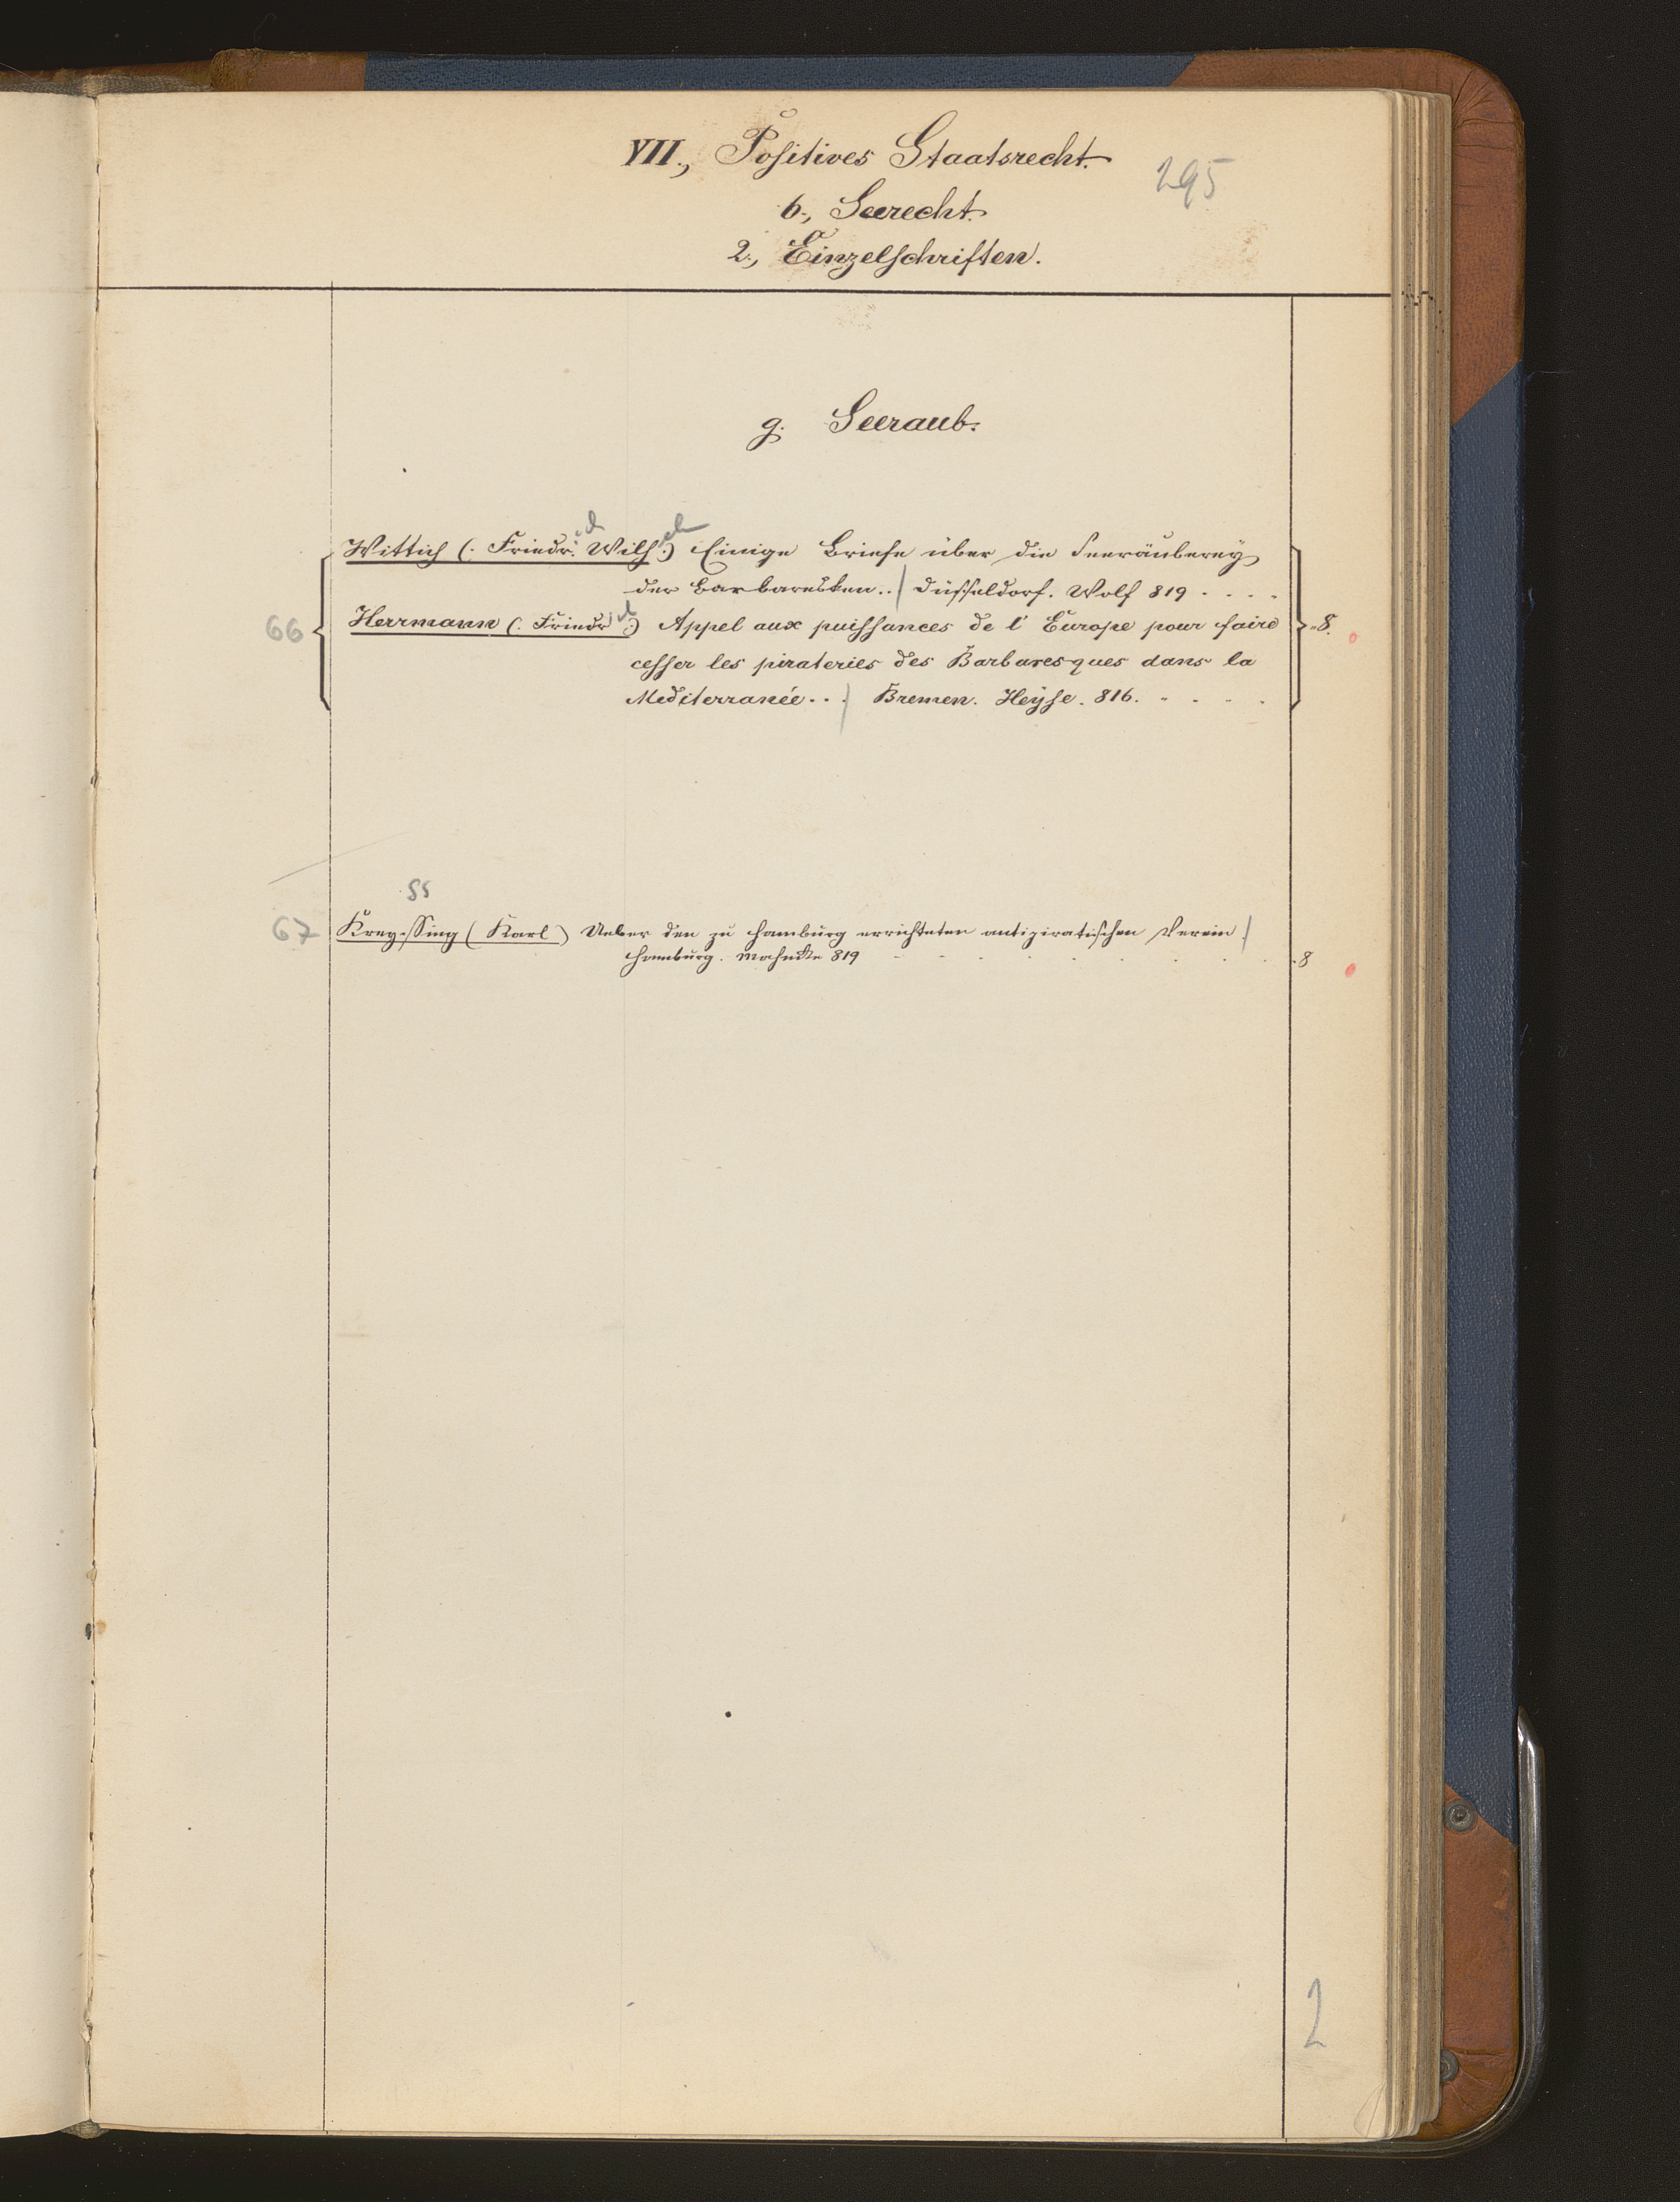 VII., Positives Staatsrecht.
295
b., Seerecht.
2., Einzelschriften.
g. Seeraub.
Wittich (: Friedr. Wilh :) Einige Briefe über die Seeräuberey
der Barbaresken .. / Düsseldorf. Wolf 819 . . . .
66 Herrmann (: Friedr :) Appel aux puissances de l' Europe pour faire 8.
cesser les pirateries des Barbaresques dans la
Mediterranée .. / Bremen. Heyse. 816. . . . .
ss
67 Kreyssing ( Karl ) Ueber den zu Hamburg errichteten antipiratischen Verein. /
Hamburg. 819 . . . . . . . . 8
2